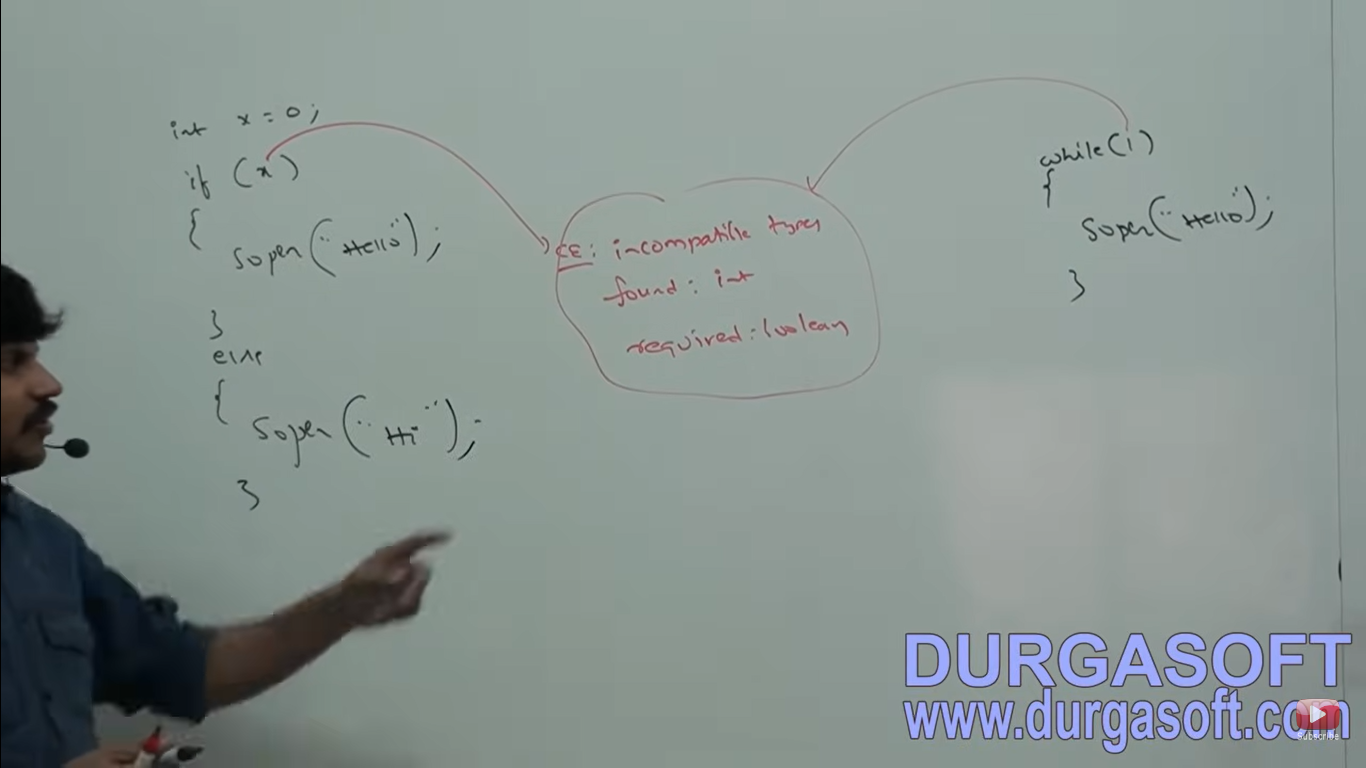 int x = 0;
if (x)
{
Sopln("Hello");
}
else
{
Sopln("Hi");
}
CE: incompatible types
found: int
required: boolean
while(1)
{
Sopln("Hello");
}
DURGASOFT
www.durgasoft.com
Subscribe